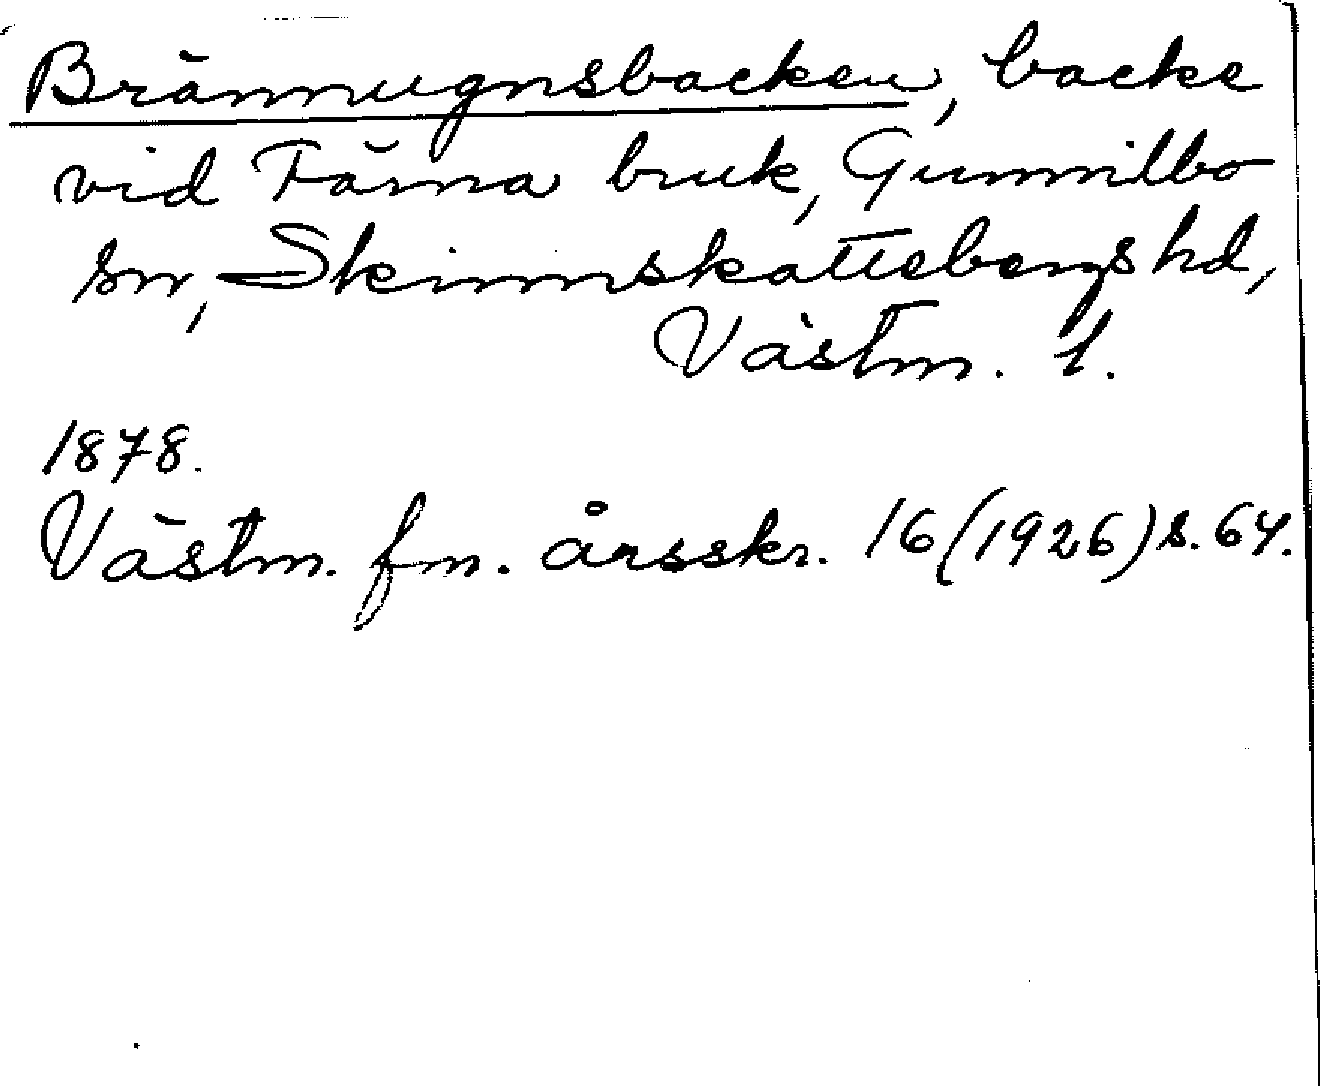 Brännugnsbacken, backe
vid Färna bruk, Gunnilbo
sn, Skinnskattebergs hd,
Västm. l.
1878.
Västm. fm. årsskr. 16 (1926) s. 64.